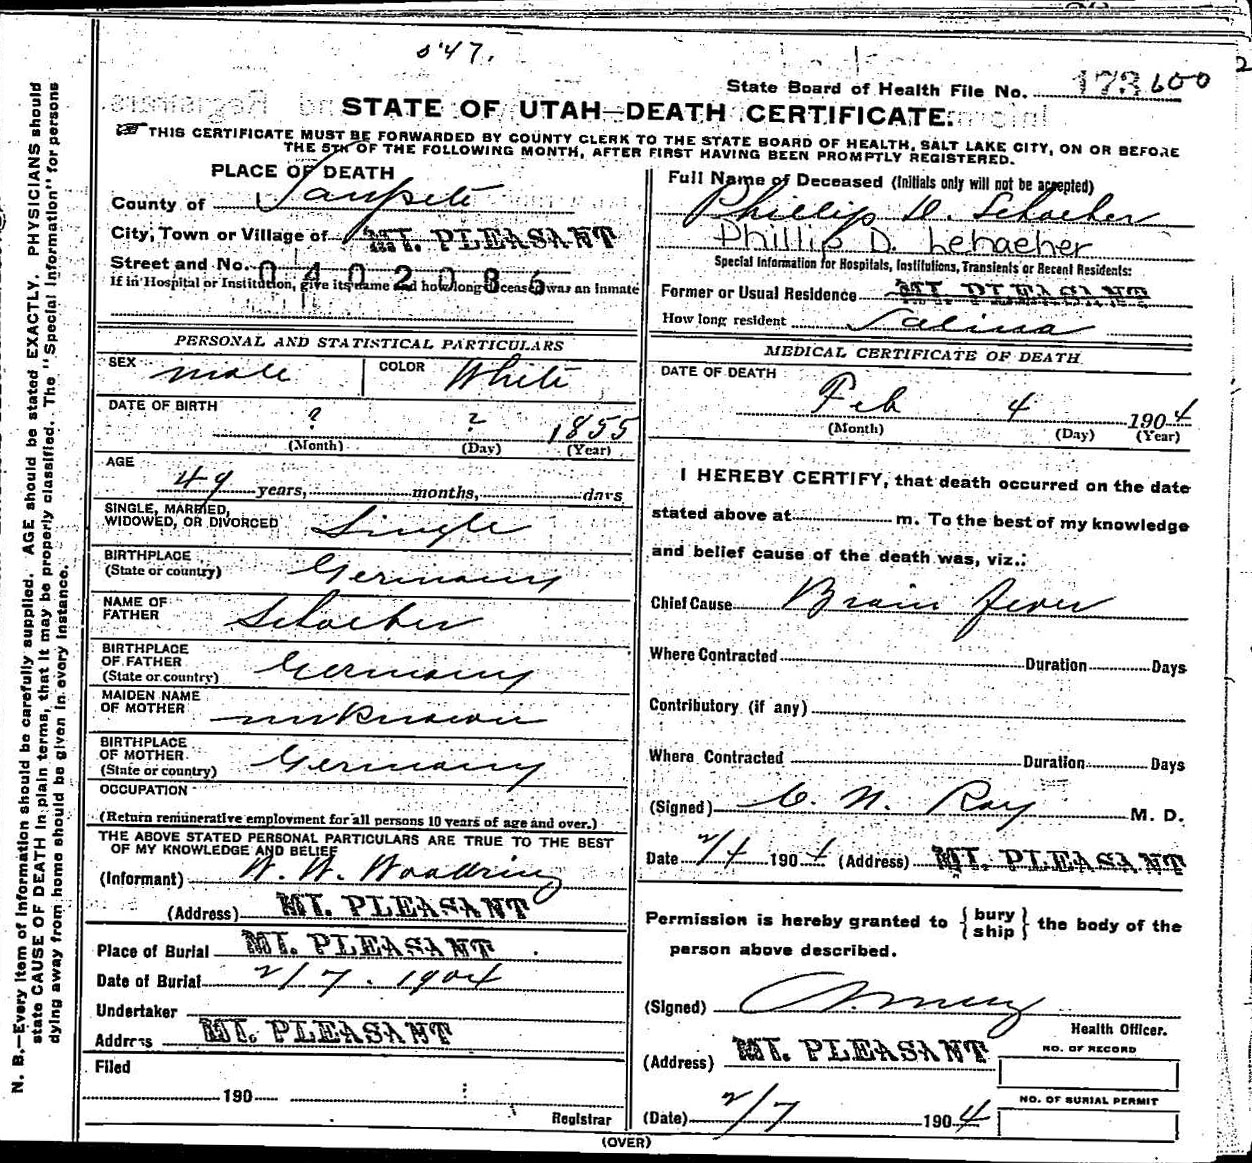 0'47.
State Board of Health File No. 173600
STATE OF UTAH—DEATH CERTIFICATE.
THIS CERTIFICATE MUST BE FORWARDED BY COUNTY CLERK TO THE STATE BOARD OF HEALTH, SALT LAKE CITY, ON OR BEFORE
THE 5TH OF THE FOLLOWING MONTH, AFTER FIRST HAVING BEEN PROMPTLY REGISTERED.
PLACE OF DEATH
County of Sanpete
City, Town or Village of MT. PLEASANT
Street and No. 0402086
If in Hospital or Institution, give its name and how long deceased was an inmate
Full Name of Deceased (Initials only will not be accepted)
Phillip D. Schaeher
Phillip D. Lehaeher
Special Information for Hospitals, Institutions, Transients or Recent Residents:
Former or Usual Residence MT. PLEASANT
How long resident Salina
PERSONAL AND STATISTICAL PARTICULARS
SEX male COLOR White
DATE OF BIRTH
? ? 1855
(Month) (Day) (Year)
AGE
49 years, months, days
SINGLE, MARRIED,
WIDOWED, OR DIVORCED Single
BIRTHPLACE
(State or country) Germany
NAME OF
FATHER Schaeher
BIRTHPLACE
OF FATHER
(State or country) Germany
MAIDEN NAME
OF MOTHER unknown
BIRTHPLACE
OF MOTHER
(State or country) Germany
OCCUPATION
(Return remunerative employment for all persons 10 years of age and over.)
THE ABOVE STATED PERSONAL PARTICULARS ARE TRUE TO THE BEST
OF MY KNOWLEDGE AND BELIEF
(Informant) W. W. Woodring
(Address) MT. PLEASANT
Place of Burial MT. PLEASANT
Date of Burial 2/7. 1904
Undertaker
Address MT. PLEASANT
Filed
190
Registrar
MEDICAL CERTIFICATE OF DEATH
DATE OF DEATH
Feb 4 1904
(Month) (Day) (Year)
I HEREBY CERTIFY, that death occurred on the date
stated above at m. To the best of my knowledge
and belief cause of the death was, viz.:
Chief Cause Brain fever
Where Contracted Duration Days
Contributory (if any)
Where Contracted Duration Days
(Signed) C. N. Ray M. D.
Date 2/4 1904 (Address) MT. PLEASANT
Permission is hereby granted to { bury
ship } the body of the
person above described.
(Signed)
Health Officer.
(Address) MT. PLEASANT
NO. OF RECORD
NO. OF BURIAL PERMIT
(Date) 2/7 1904
(OVER)
N. B.—Every item of information should be carefully supplied. AGE should be stated EXACTLY. PHYSICIANS should
state CAUSE OF DEATH in plain terms, that it may be properly classified. The "Special Information" for persons
dying away from home should be given in every instance.